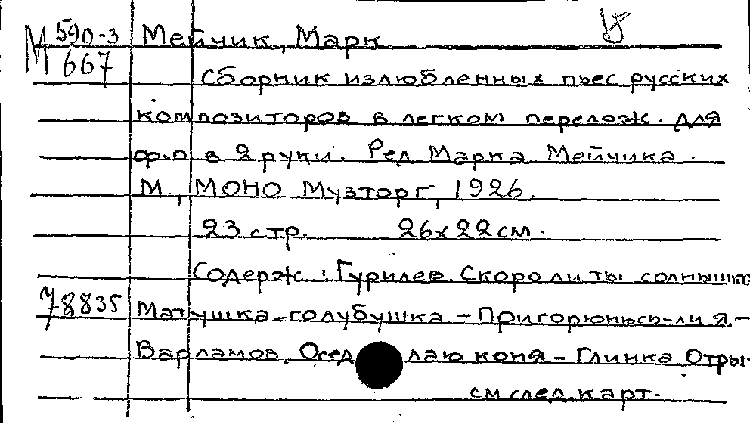 М 590-3 Мейчик, Марк
667 Сборник излюбленных пьес русских
композиторов в легком перелож. для
ф.п в 2 руки. Ред. Марка Мейчика.
М., МОНО Музторг, 1926.
23 стр. 26х22 см.
Содерж.: Гурилев. Скоро ли ты солнышко
78835 Матушка-голубушка - Пригорюнюсь-ли я -
Варламов. Осед лаю коня - Глинка Отры-
см след. карт.